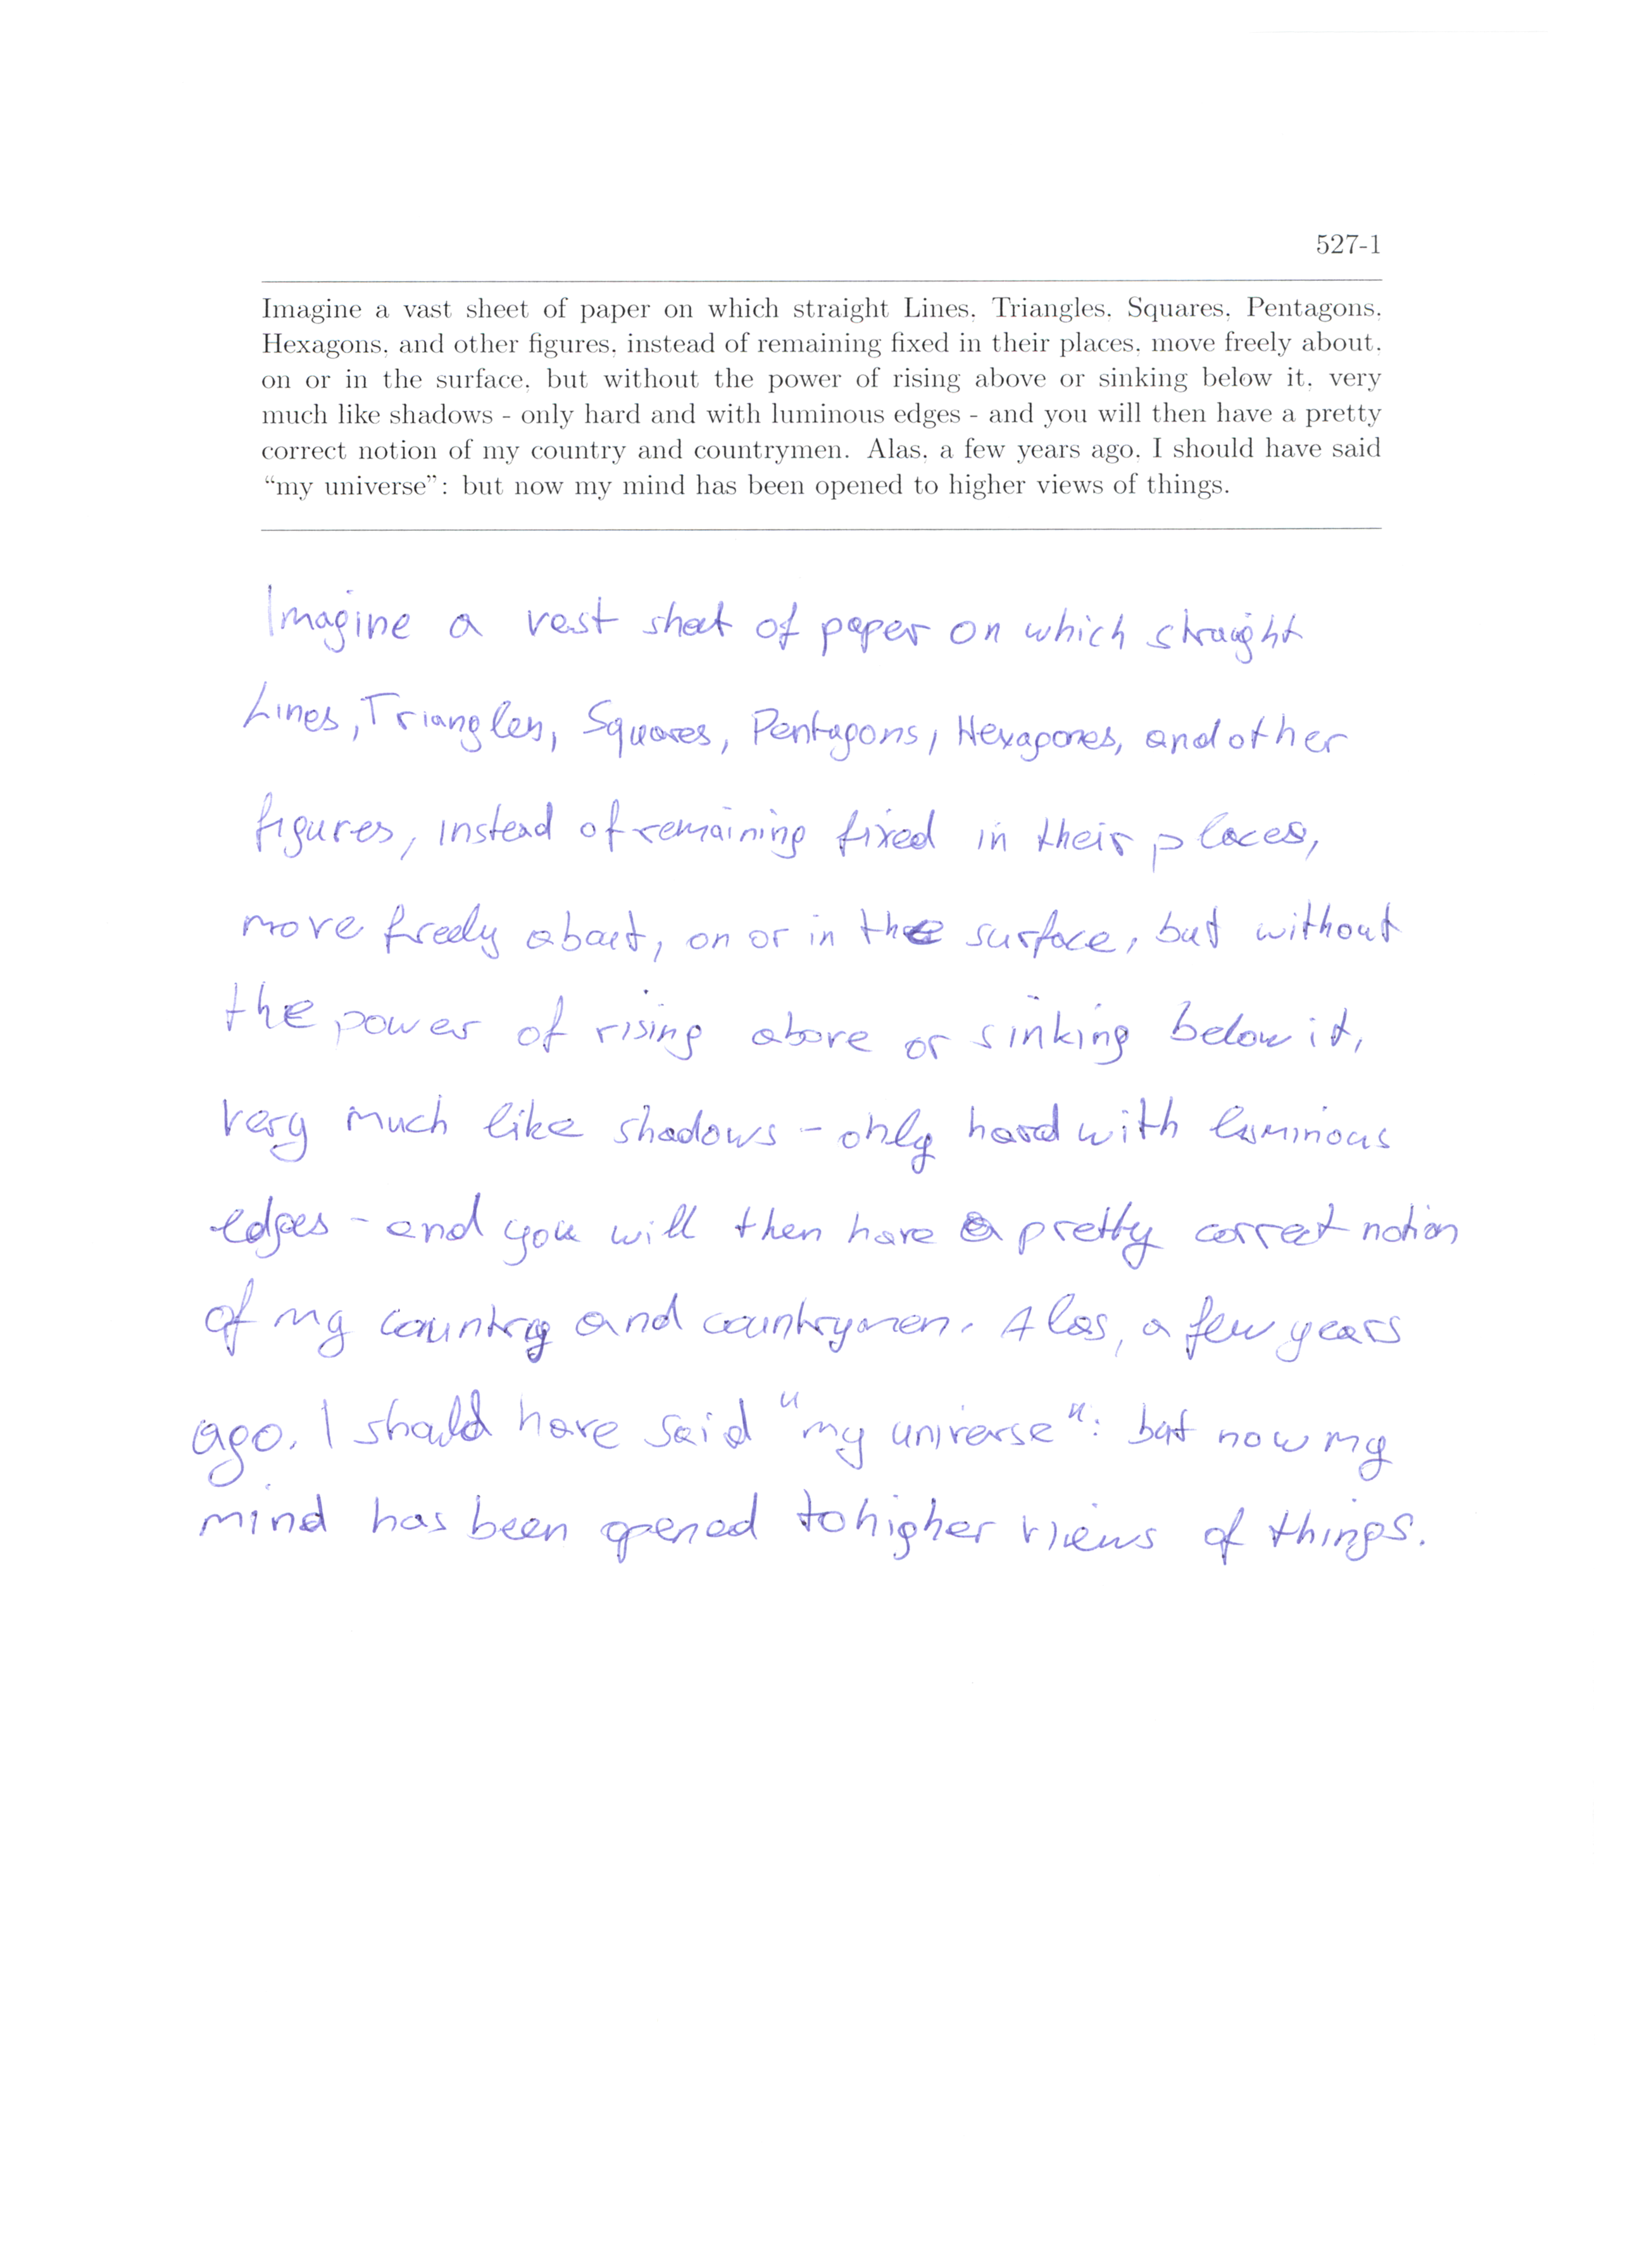 527-1
Imagine a vast sheet of paper on which straight Lines, Triangles, Squares, Pentagons,
Hexagons, and other figures, instead of remaining fixed in their places, move freely about,
on or in the surface, but without the power of rising above or sinking below it, very
much like shadows - only hard and with luminous edges - and you will then have a pretty
correct notion of my country and countrymen. Alas, a few years ago, I should have said
“my universe”: but now my mind has been opened to higher views of things.
Imagine a vast sheet of paper on which straight
Lines, Triangles, Squares, Pentagons, Hexagones, and other
figures, instead of remaining fixed in their places,
move freely about, on or in the surface, but without
the power of rising above or sinking below it,
very much like shadows - only hard with luminous
edges - and you will then have a pretty correct notion
of my country and countrymen. Alas, a few years
ago. I should have said "my universe": but now my
mind has been opened to higher views of things.